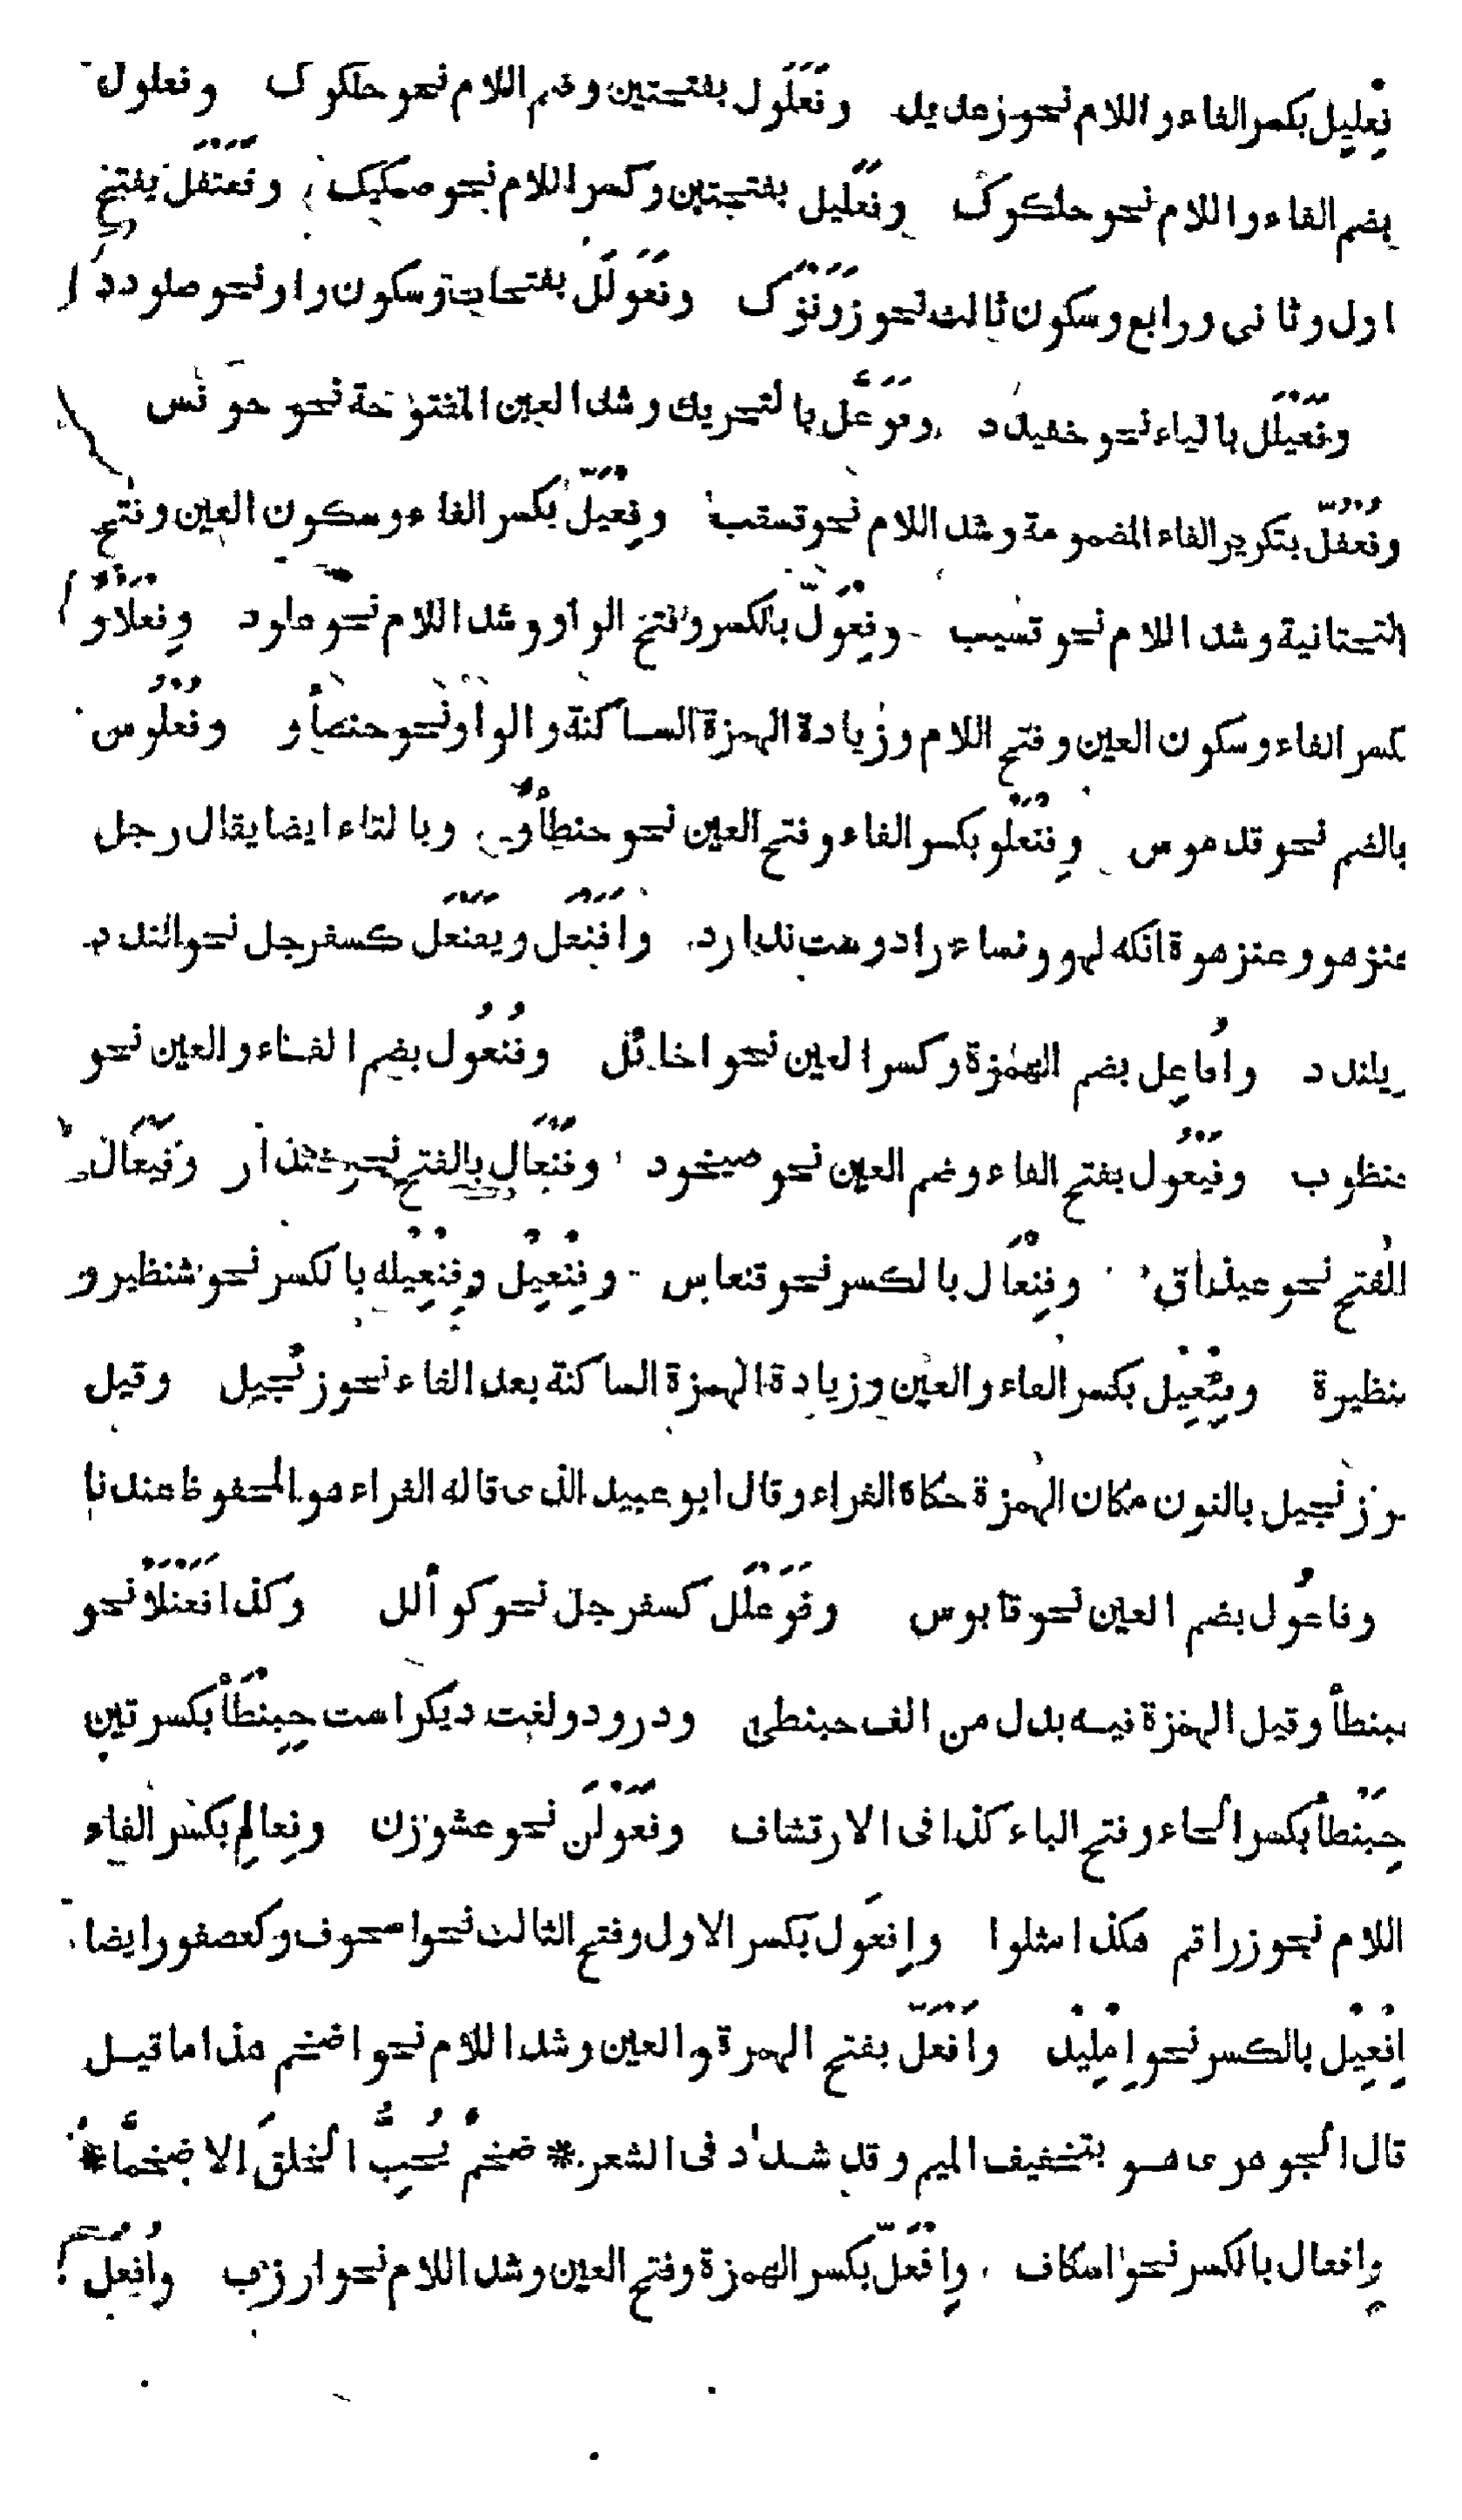 فِعلِيل بكسر الفاء و اللام نحو زهليل وفَعَلُول بفتحتين وضم اللام نحو حلكوك وفعلول
بضم الفاء و اللام نحو حلكوك وفَعَلِيل بفتحتين وكسر اللام نحو صمكيك وفَعَنْفَل بفتح
اول و ثاني و رابع و سكون ثالث نحو زَوَنْزَك وفَعَوْلَل بفتحات و سكون واو نحو صلودد
وفَعَيْلَل بالياء نحو خفيدد وفَوَعَّل بالتحريك و شد العين المفتوحة نحو
وفُعْفُلّ بتكرير الفاء المضمومة و شد اللام نحو قسقب وفِعْيَلّ بكسر الفاء و سكون العين و فتح
التحتانية و شد اللام نحو قسيب وفِعْوَلّ بالكسر و فتح الواو و شد اللام نحو علود وفِعْلَأْو
كسر الفاء و سكون العين و فتح اللام و زيادة الهمزة الساكنة و الواو نحو حنصأو وفُعْلُوس
بالضم نحو قدموس وفِنَعْلو بكسر الفاء و فتح العين نحو حنطأو و بالتاء ايضا يقال رجل
عنزهو و عنزهوة انكه لهو و نساء را دوست ندارد و اَفَنْعَل و يَفَنْعَل كسفرجل نحو النندد
يلندد واُفاعِل بضم الهمزة و كسر العين نحو اخائل وفُنْعُول بضم الفاء و العين نحو
عنظوب وفَيْعُول بفتح الفاء و ضم العين نحو صيخود وفَنْعَال بالفتح نحو وفَيْعَال
الفتح نحو عيذاق وفِنْعَال بالكسر نحو قنعاس وفِنْعِيل وفِنْعِيله بالكسر نحو شنظير و
نظيرة وفِئْعِيل بكسر الفاء و العين و زيادة الهمزة الساكنة بعد الفاء نحو زئجيل وقيل
و زنجيل بالنون مكان الهمزة حكاه الفراء و قال ابو عبيد الذى قاله الفراء هو المحفوظ عندنا
وفاعُول بضم العين نحو قابوس وفَوَعْلَل كسفرجل نحو كوألل و كذا فَعَنْلَأ نحو
حبنطأ و قيل الهمزة فيه بدل من الف حبنطى و درو دو لغت ديكر است حِبِنْطَأ بكسرتين
حِبَنْطَأ بكسر الحاء و فتح الباء كذا فى الارتشاف وفَعَوْلَن نحو عشوزن وفِعالِم بكسر الفاء
اللام نحو زراقم هكذا مثلوا واِفعَول بكسر الاول و فتح الثالث نحو اسحوف و كعصفور ايضا
اِفْعِيل بالكسر نحو اِمْلِيد واَفْعَلّ بفتح الهمزة و العين و شد اللام نحو اضخم هذا ما قيل
قال الجوهرى هو بتخفيف الميم و قد شدد فى الشعر * ضخمٌ يُحِبُّ الخلقَ الاضخمّا *
وِافعال بالكسر نحو اسكاف واِفْعَلّ بكسر الهمزة و فتح العين و شد اللام نحو ارزب واُفعلّ